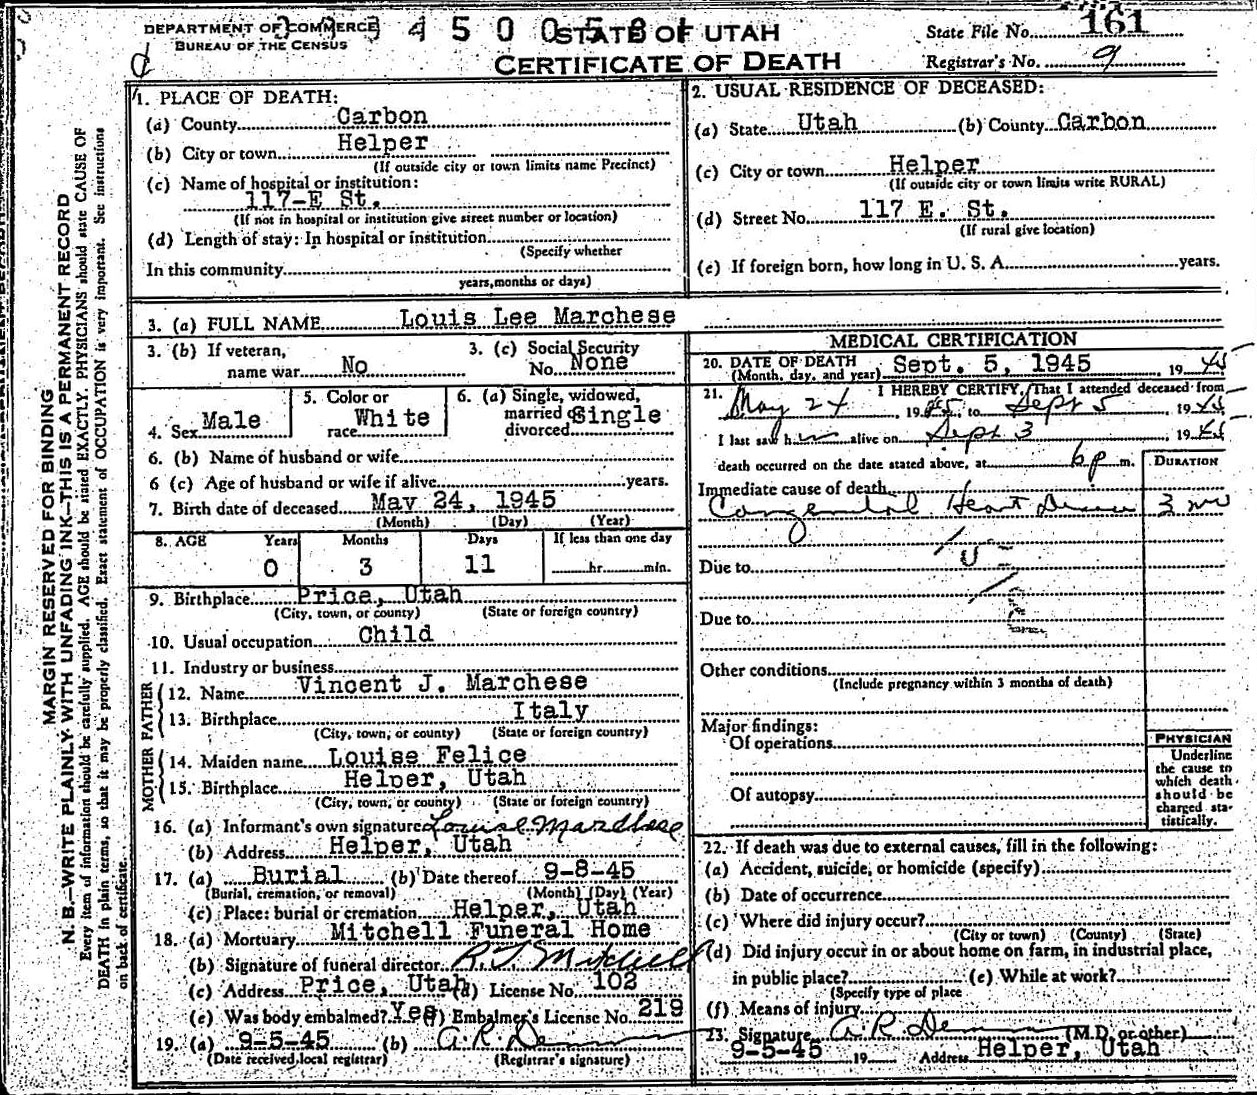 DEPARTMENT OF COMMERCE
BUREAU OF THE CENSUS
4 5 0 0 5 8
STATE OF UTAH
CERTIFICATE OF DEATH
State File No. 161
Registrar's No. 9
MARGIN RESERVED FOR BINDING
N. B.—WRITE PLAINLY WITH UNFADING INK—THIS IS A PERMANENT RECORD
Every item of information should be carefully supplied. AGE should be stated EXACTLY. PHYSICIANS should state CAUSE OF
DEATH in plain terms, so that it may be properly classified. Exact statement of OCCUPATION is very important. See instructions
on back of certificate.
1. PLACE OF DEATH:
(a) County Carbon
(b) City or town Helper
(If outside city or town limits name Precinct)
(c) Name of hospital or institution:
117-E St.
(If not in hospital or institution give street number or location)
(d) Length of stay: In hospital or institution
(Specify whether
In this community
years, months or days)
2. USUAL RESIDENCE OF DECEASED:
(a) State Utah (b) County Carbon
(c) City or town Helper
(If outside city or town limits write RURAL)
(d) Street No. 117 E. St.
(If rural give location)
(e) If foreign born, how long in U. S. A. years.
3. (a) FULL NAME Louis Lee Marchese
3. (b) If veteran, name war No
3. (c) Social Security No. None
4. Sex Male
5. Color or race White
6. (a) Single, widowed, married or divorced Single
6. (b) Name of husband or wife
6 (c) Age of husband or wife if alive years.
7. Birth date of deceased May 24, 1945
(Month) (Day) (Year)
8. AGE Years Months Days If less than one day
0 3 11 hr. min.
9. Birthplace Price, Utah
(City, town, or county) (State or foreign country)
10. Usual occupation Child
11. Industry or business
FATHER
12. Name Vincent J. Marchese
13. Birthplace Italy
(City, town, or county) (State or foreign country)
MOTHER
14. Maiden name Louise Felice
15. Birthplace Helper, Utah
(City, town, or county) (State or foreign country)
16. (a) Informant's own signature Louise Marchese
(b) Address Helper, Utah
17. (a) Burial (b) Date thereof 9-8-45
(Burial, cremation, or removal) (Month) (Day) (Year)
(c) Place: burial or cremation Helper, Utah
18. (a) Mortuary Mitchell Funeral Home
(b) Signature of funeral director R. J. Mitchell
(c) Address Price, Utah (d) License No. 102
(e) Was body embalmed? Yes (f) Embalmer's License No. 219
19. (a) 9-5-45 (b) A. R.
(Date received local registrar) (Registrar's signature)
MEDICAL CERTIFICATION
20. DATE OF DEATH Sept. 5, 1945 19 45
(Month, day, and year)
21. I HEREBY CERTIFY, That I attended deceased from
May 24, 1945, to Sept 5, 1945
I last saw him alive on Sept 3, 1945
death occurred on the date stated above, at 6 p m.
DURATION
Immediate cause of death
Congenital Heart Disease 3 mo
Due to
Due to
Other conditions
(Include pregnancy within 3 months of death)
Major findings:
Of operations
Of autopsy
PHYSICIAN
Underline
the cause to
which death
should be
charged sta-
tistically.
22. If death was due to external causes, fill in the following:
(a) Accident, suicide, or homicide (specify)
(b) Date of occurrence
(c) Where did injury occur?
(City or town) (County) (State)
(d) Did injury occur in or about home on farm, in industrial place,
in public place? (e) While at work?
(Specify type of place
(f) Means of injury
23. Signature A. R. (M.D. or other)
9-5-45 19 Address Helper, Utah